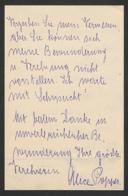 Verzeihen Sie mein Vertrauen
aber Sie können sich
meine Bewunderung
und Verehrung nicht
vorstellen. Ich warte
mit Sehnsucht!
Mit vielem Danke in
unvergleichlicher Be-
wunderung Ihre größte
Verehrerin